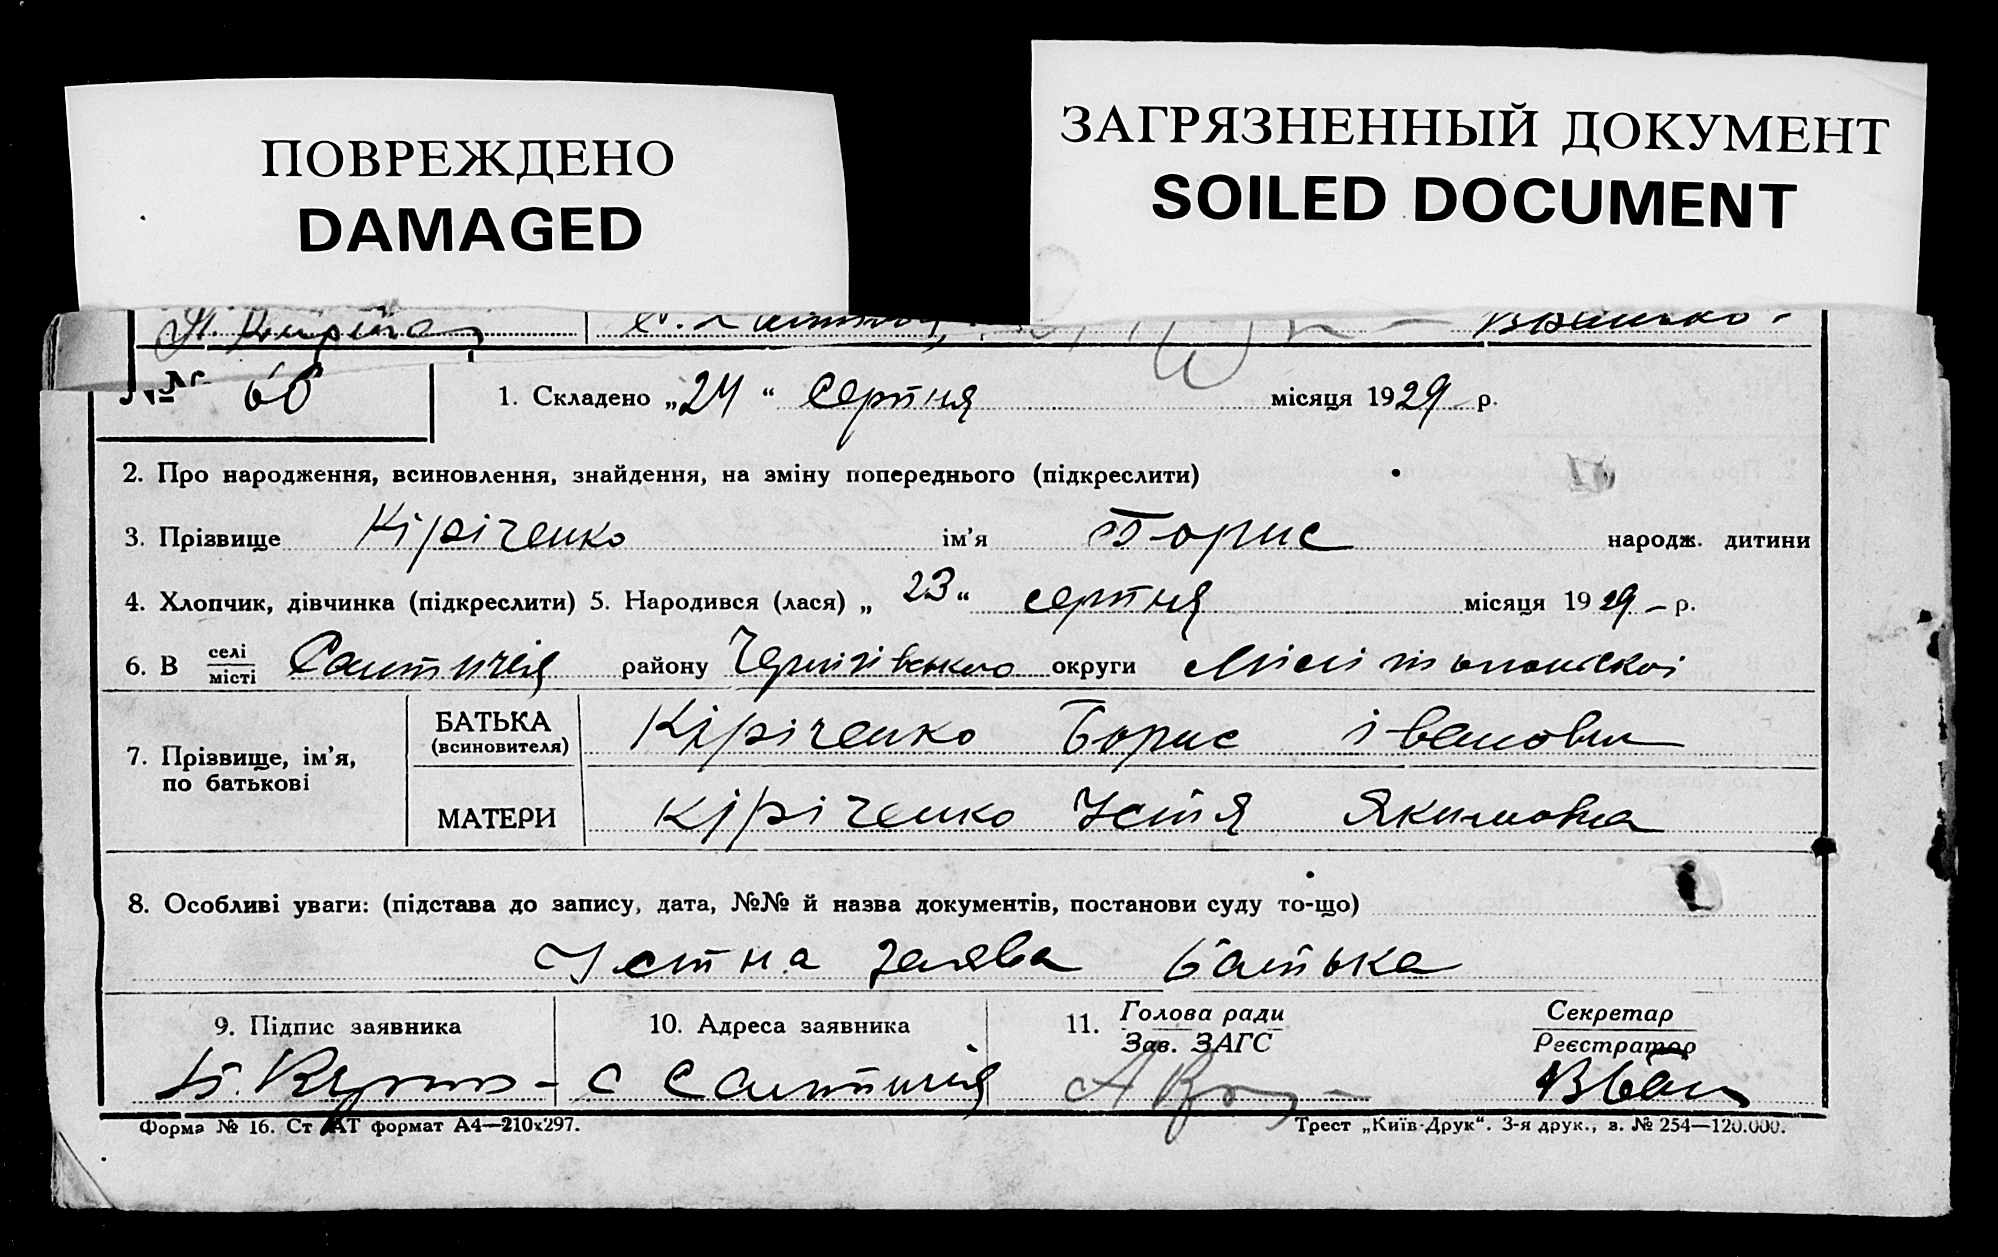 ПОВРЕЖДЕНО
DAMAGED
ЗАГРЯЗНЕННЫЙ ДОКУМЕНТ
SOILED DOCUMENT
№ 60
1. Складено „24“ серпня місяця 1929 р.
2. Про народження, всиновлення, знайдення, на зміну попереднього (підкреслити)
3. Прізвище Кіріченко ім’я Борис народж. дитини
4. Хлопчик, дівчинка (підкреслити) 5. Народився (лася) „23“ серпня місяця 1929 – р.
6. В селі
місті
району Чернігівського округи
7. Прізвище, ім’я,
по батькові
БАТЬКА
(всиновителя)
Кіріченко Борис Іванович
МАТЕРИ Кіріченко Устя Якимовна
8. Особливі уваги: (підстава до запису, дата, №№ й назва документів, постанови суду то-що)
Устна заява батька
9. Підпис заявника
10. Адреса заявника
11. Голова ради
Зав. ЗАГС
Секретар
Реєстратор
Форма № 16. Ст АТ формат А4—210х297.
Трест „Київ-Друк“. 3-я друк., з. № 254—120.000.